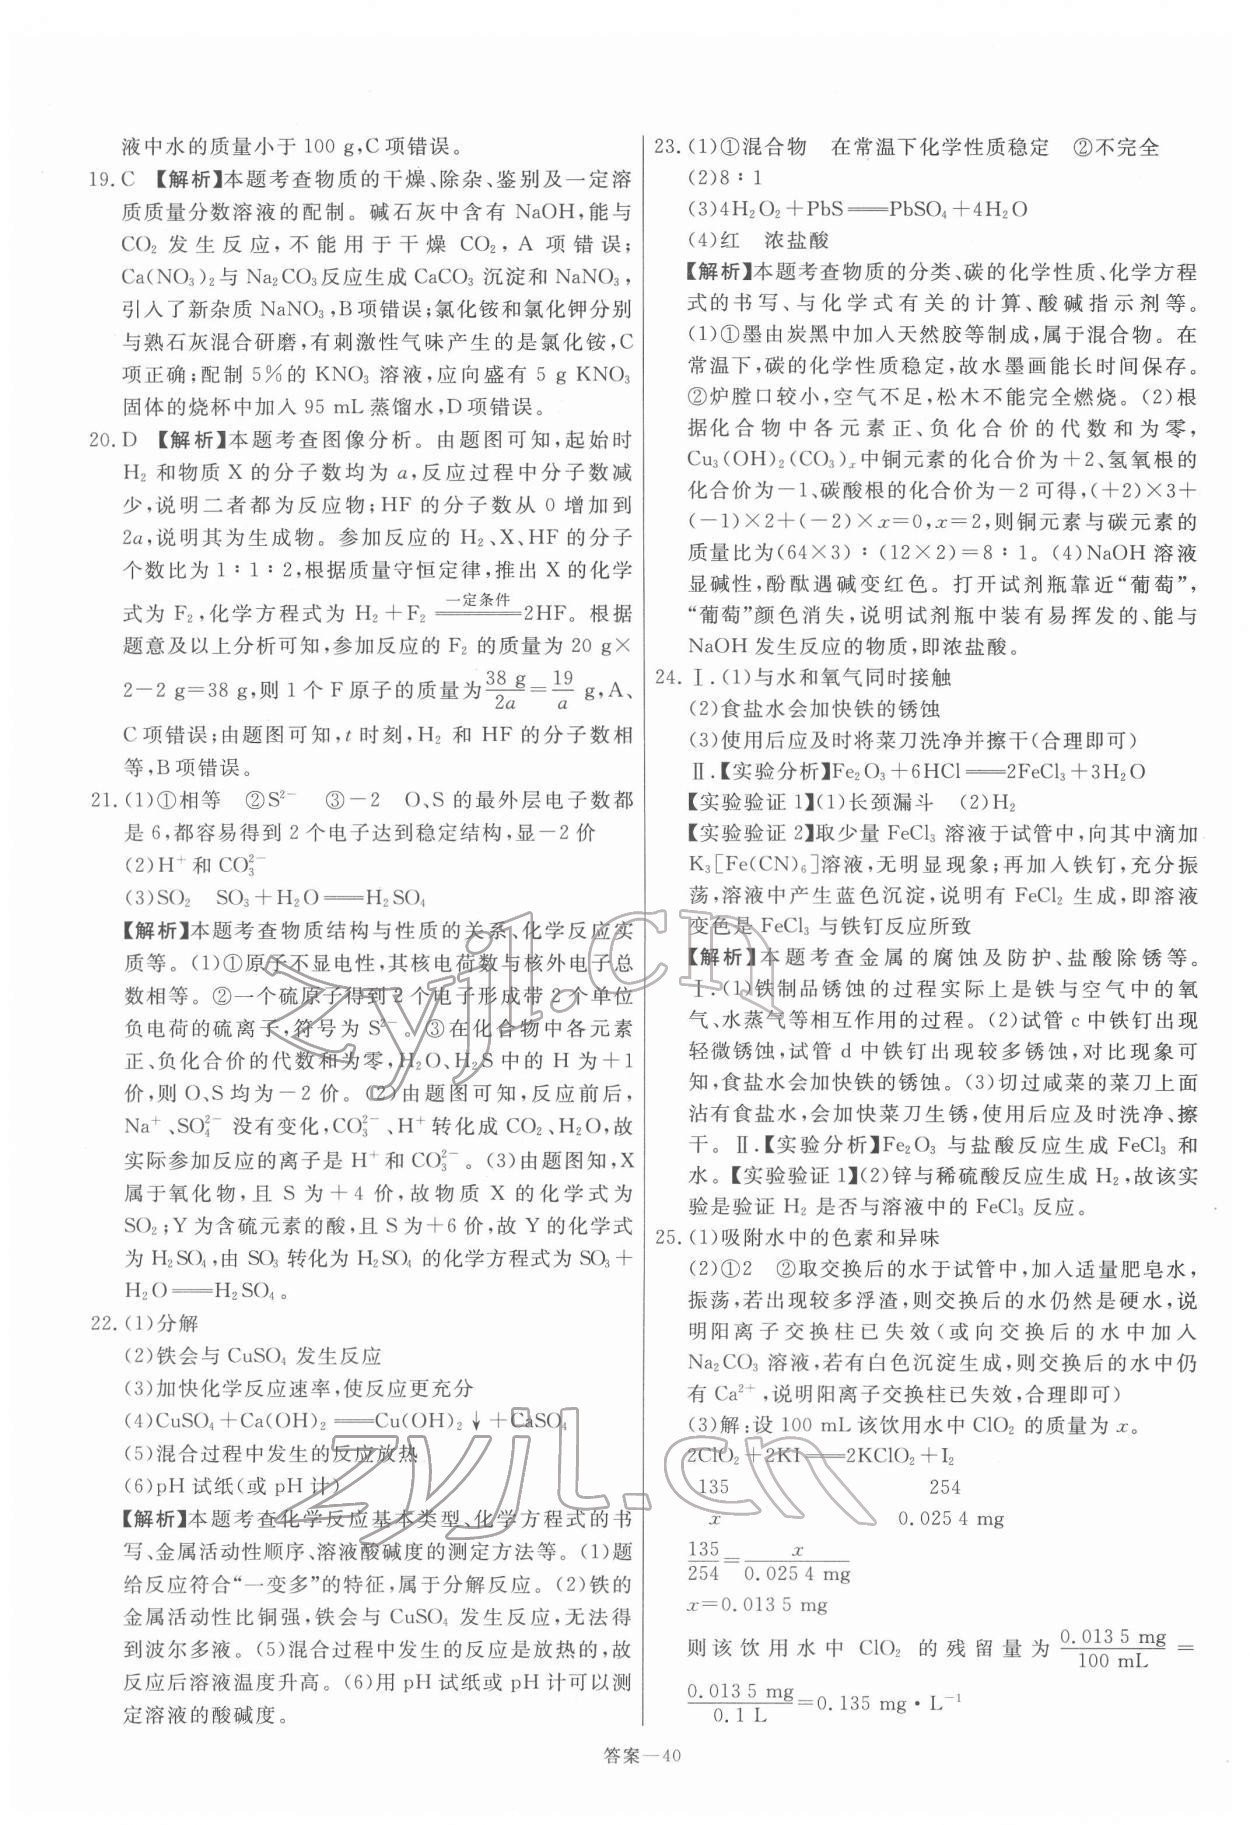 液中水的质量小于 100 g,C项错误。
19. C 【解析】本题考查物质的干燥、除杂、鉴别及一定溶
质质量分数溶液的配制。碱石灰中含有 NaOH,能与
CO₂ 发生反应,不能用于干燥 CO₂,A 项错误;
Ca(NO₃)₂与 Na₂CO₃反应生成 CaCO₃ 沉淀和 NaNO₃,
引入了新杂质 NaNO₃,B项错误;氯化铵和氯化钾分别
与熟石灰混合研磨,有刺激性气味产生的是氯化铵,C
项正确;配制 5%的 KNO₃ 溶液,应向盛有 5 g KNO₃
固体的烧杯中加入 95 mL 蒸馏水,D项错误。
20. D 【解析】本题考查图像分析。由题图可知,起始时
H₂ 和物质 X 的分子数均为 a,反应过程中分子数减
少,说明二者都为反应物;HF 的分子数从 0 增加到
2a,说明其为生成物。参加反应的 H₂、X、HF 的分子
个数比为 1∶1∶2,根据质量守恒定律,推出 X 的化学
式为 F₂,化学方程式为 H₂+F₂ ══一定条件══ 2HF。根据
题意及以上分析可知,参加反应的 F₂ 的质量为 20 g×
2-2 g=38 g,则 1 个 F 原子的质量为 38 g/2a = 19/a g,A、
C项错误;由题图可知,t 时刻,H₂ 和 HF 的分子数相
等,B项错误。
21. (1)①相等 ②S²⁻ ③-2 O、S 的最外层电子数都
是 6,都容易得到 2 个电子达到稳定结构,显-2 价
(2)H⁺ 和 CO₃²⁻
(3)SO₂ SO₃+H₂O══H₂SO₄
【解析】本题考查物质结构与性质的关系、化学反应实
质等。(1)①原子不显电性,其核电荷数与核外电子总
数相等。②一个硫原子得到 2 个电子形成带 2 个单位
负电荷的硫离子,符号为 S²⁻。③在化合物中各元素
正、负化合价的代数和为零,H₂O、H₂S 中的 H 为+1
价,则 O、S 均为-2 价。(2)由题图可知,反应前后,
Na⁺、SO₄²⁻ 没有变化,CO₃²⁻、H⁺ 转化成 CO₂、H₂O,故
实际参加反应的离子是 H⁺ 和 CO₃²⁻。(3)由题图知,X
属于氧化物,且 S 为+4 价,故物质 X 的化学式为
SO₂;Y 为含硫元素的酸,且 S为+6 价,故 Y 的化学式
为 H₂SO₄,由 SO₃ 转化为 H₂SO₄ 的化学方程式为 SO₃+
H₂O══H₂SO₄。
22. (1)分解
(2)铁会与 CuSO₄ 发生反应
(3)加快化学反应速率,使反应更充分
(4)CuSO₄+Ca(OH)₂══Cu(OH)₂↓+CaSO₄
(5)混合过程中发生的反应放热
(6)pH 试纸(或 pH 计)
【解析】本题考查化学反应基本类型、化学方程式的书
写、金属活动性顺序、溶液酸碱度的测定方法等。(1)题
给反应符合“一变多”的特征,属于分解反应。(2)铁的
金属活动性比铜强,铁会与 CuSO₄ 发生反应,无法得
到波尔多液。(5)混合过程中发生的反应是放热的,故
反应后溶液温度升高。(6)用 pH 试纸或 pH 计可以测
定溶液的酸碱度。
23. (1)①混合物 在常温下化学性质稳定 ②不完全
(2)8∶1
(3)4H₂O₂+PbS══PbSO₄+4H₂O
(4)红 浓盐酸
【解析】本题考查物质的分类、碳的化学性质、化学方程
式的书写、与化学式有关的计算、酸碱指示剂等。
(1)①墨由炭黑中加入天然胶等制成,属于混合物。在
常温下,碳的化学性质稳定,故水墨画能长时间保存。
②炉膛口较小,空气不足,松木不能完全燃烧。(2)根
据化合物中各元素正、负化合价的代数和为零,
Cu₃(OH)₂(CO₃)ₓ中铜元素的化合价为+2、氢氧根的
化合价为-1、碳酸根的化合价为-2 可得,(+2)×3+
(-1)×2+(-2)×x=0,x=2,则铜元素与碳元素的
质量比为(64×3)∶(12×2)=8∶1。(4)NaOH 溶液
显碱性,酚酞遇碱变红色。打开试剂瓶靠近“葡萄”,
“葡萄”颜色消失,说明试剂瓶中装有易挥发的、能与
NaOH 发生反应的物质,即浓盐酸。
24. Ⅰ.(1)与水和氧气同时接触
(2)食盐水会加快铁的锈蚀
(3)使用后应及时将菜刀洗净并擦干(合理即可)
Ⅱ.【实验分析】Fe₂O₃+6HCl══2FeCl₃+3H₂O
【实验验证 1】(1)长颈漏斗 (2)H₂
【实验验证 2】取少量 FeCl₃ 溶液于试管中,向其中滴加
K₃[Fe(CN)₆]溶液,无明显现象;再加入铁钉,充分振
荡,溶液中产生蓝色沉淀,说明有 FeCl₂ 生成,即溶液
变色是 FeCl₃ 与铁钉反应所致
【解析】本题考查金属的腐蚀及防护、盐酸除锈等。
Ⅰ.(1)铁制品锈蚀的过程实际上是铁与空气中的氧
气、水蒸气等相互作用的过程。(2)试管 c 中铁钉出现
轻微锈蚀,试管 d 中铁钉出现较多锈蚀,对比现象可
知,食盐水会加快铁的锈蚀。(3)切过咸菜的菜刀上面
沾有食盐水,会加快菜刀生锈,使用后应及时洗净、擦
干。Ⅱ.【实验分析】Fe₂O₃ 与盐酸反应生成 FeCl₃ 和
水。【实验验证 1】(2)锌与稀硫酸反应生成 H₂,故该实
验是验证 H₂ 是否与溶液中的 FeCl₃ 反应。
25. (1)吸附水中的色素和异味
(2)①2 ②取交换后的水于试管中,加入适量肥皂水,
振荡,若出现较多浮渣,则交换后的水仍然是硬水,说
明阳离子交换柱已失效(或向交换后的水中加入
Na₂CO₃ 溶液,若有白色沉淀生成,则交换后的水中仍
有 Ca²⁺,说明阳离子交换柱已失效,合理即可)
(3)解:设 100 mL 该饮用水中 ClO₂ 的质量为 x。
2ClO₂+2KI══2KClO₂+I₂
135 254
x 0.025 4 mg
135/254 = x/0.025 4 mg
x=0.013 5 mg
则该饮用水中 ClO₂ 的残留量为 0.013 5 mg/100 mL =
0.013 5 mg/0.1 L =0.135 mg·L⁻¹
答案—40
zyjl.cn
zyjl.cn